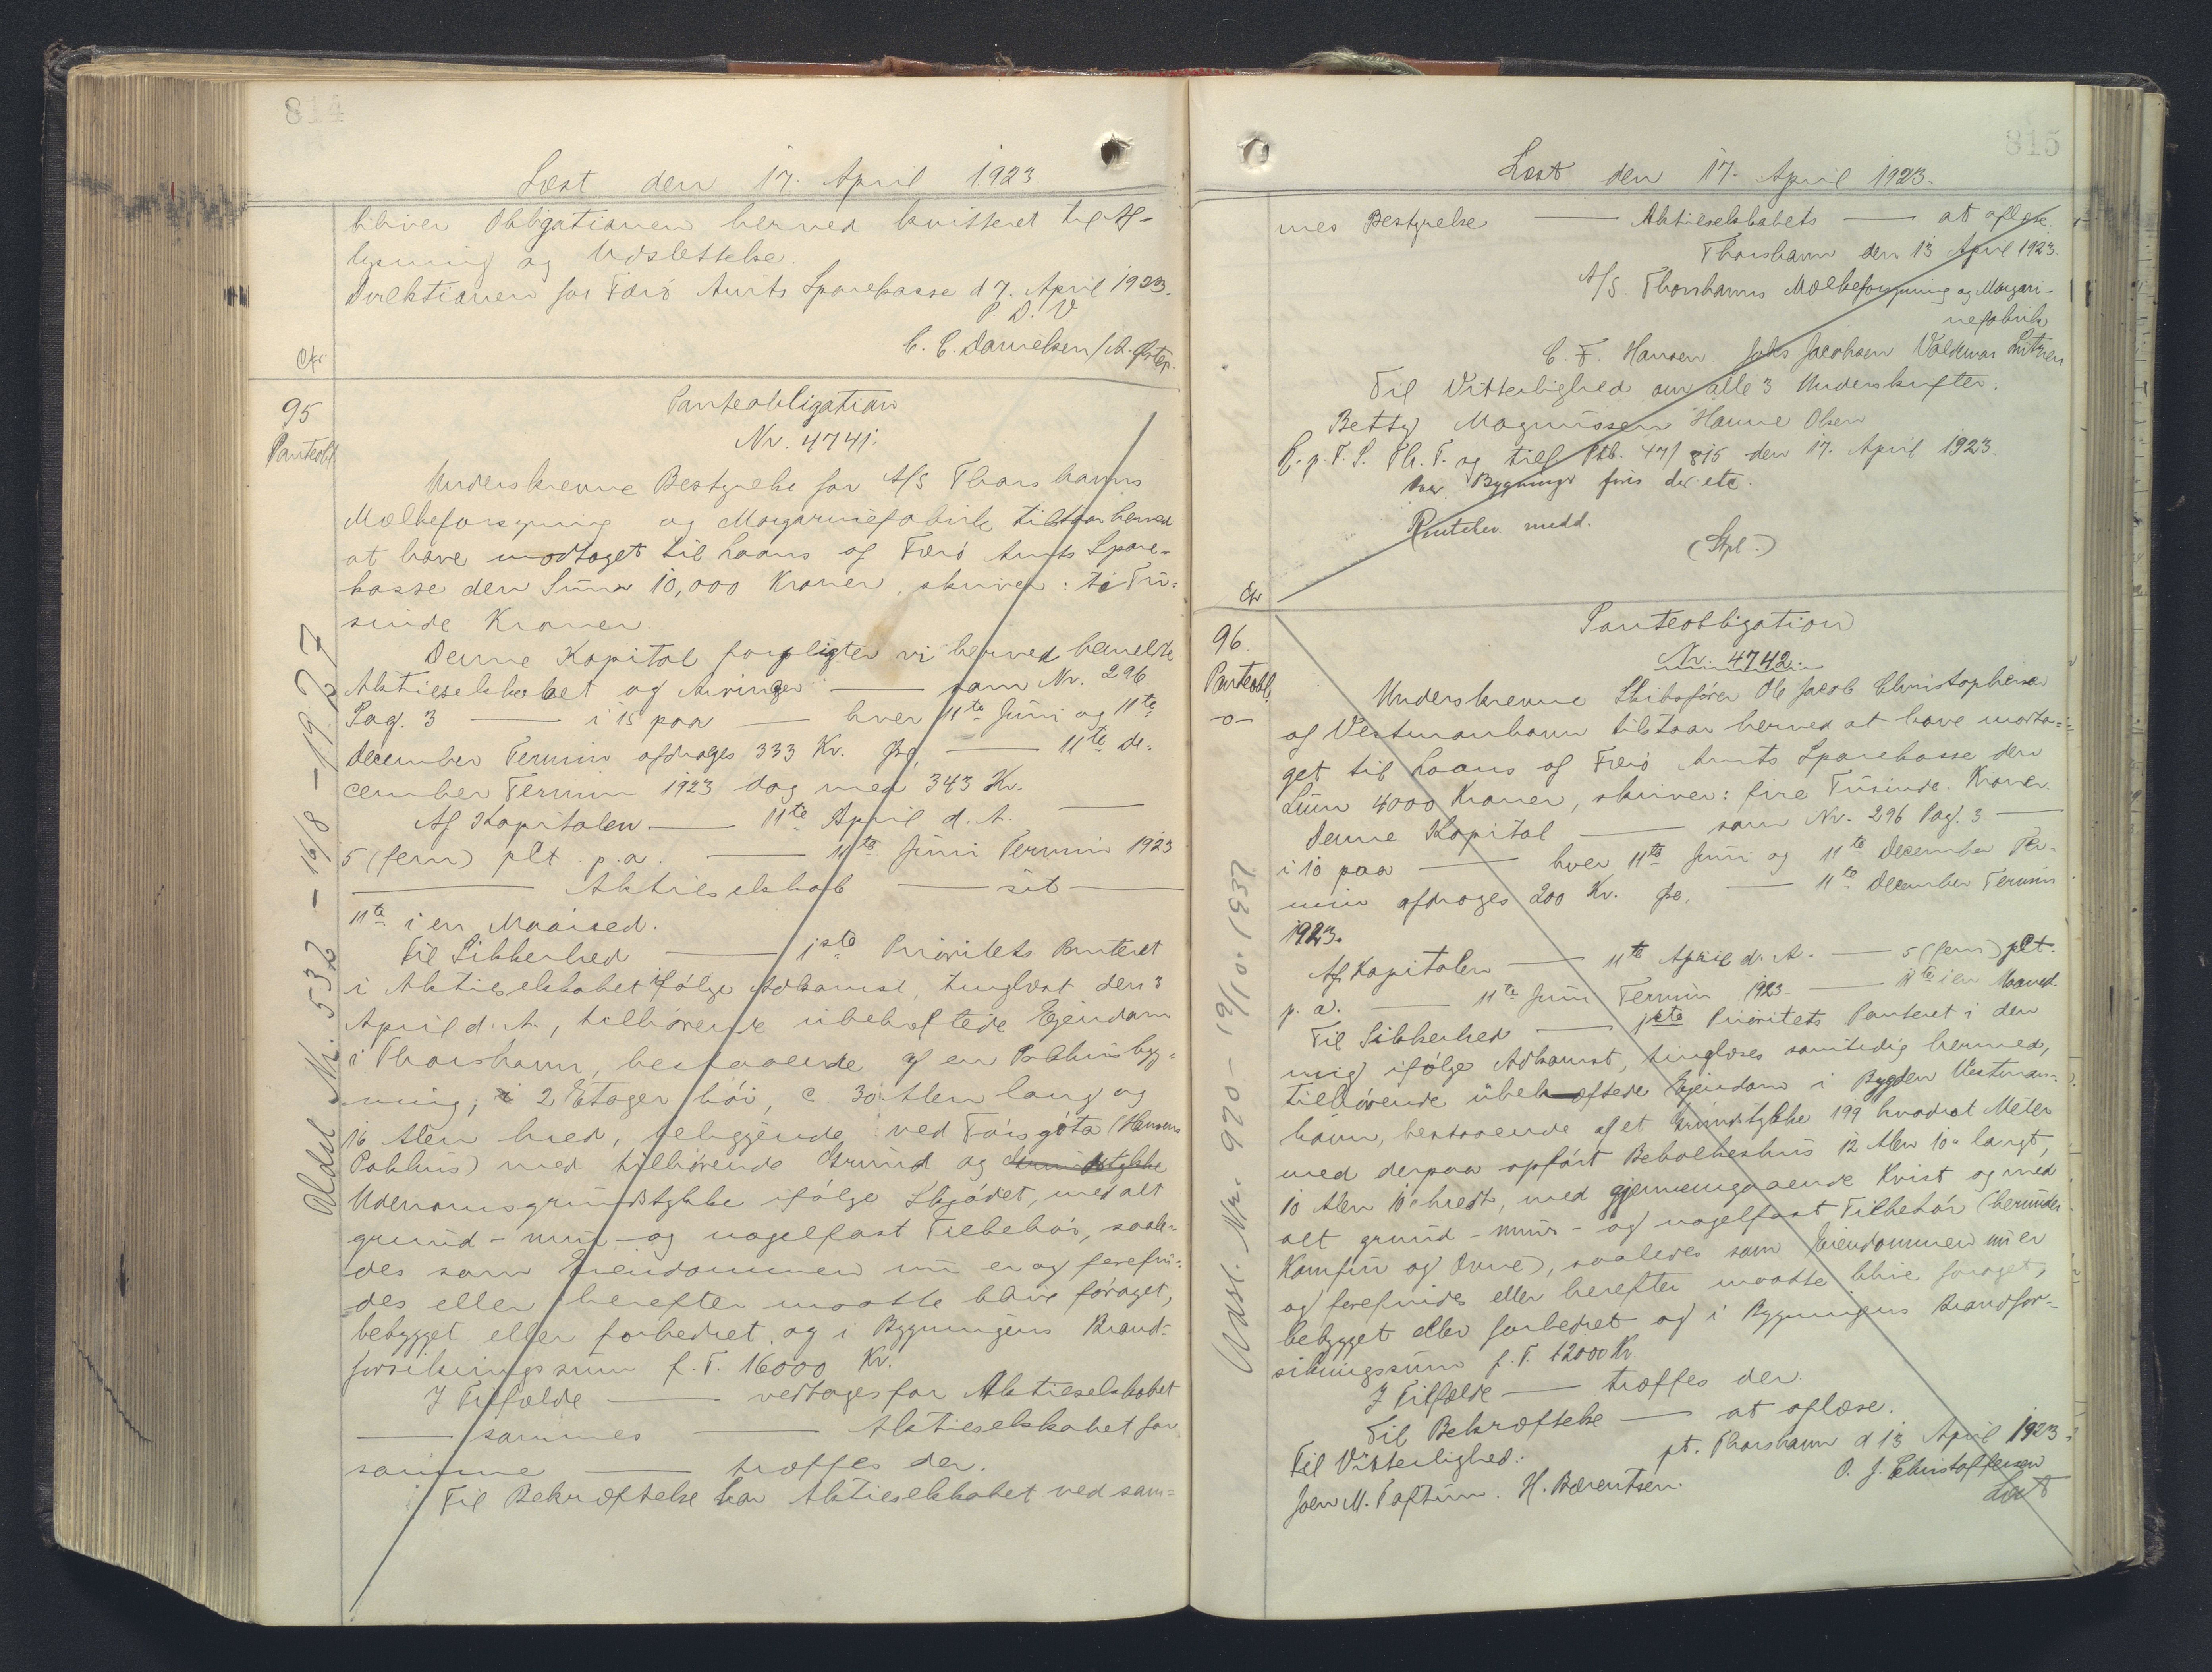 814
Læst den 17. April 1923.
bliver Obligationen herved kvitteret til Af-
lysning og Udslettelse.
Direktionen for Færö Amts Sparekasse d 7. April 1923.
P. D. V
C. C. Danielsen /
95
Panteobl
Panteobligation
Nr. 4741.
Underskrevne Bestyrelse for A/S Thorshavns
Mælkeforsyning og Margarinefabrik tilstaar herved
at have modtaget til Laans af Færö Amts Spare-
kasse den Sum 10,000 Kroner, skriver: ti Tu-
sinde Kroner.
Denne Kapital forpligter vi herved bemeldte
Aktieselskabet og Arvinger — som Nr. 296
Pag. 3 — i 15 paa — hver 11te Juni og 11te
December Termin afdrages 333 Kr. — 11te De-
cember Termin 1923 dog med 343 Kr.
Af Kapitalen — 11te April d. A. —
5 (fem) pCt. p. a. — 11te Juni Termin 1923
— Aktieselskab — sit —
11te i en Maaned.
Til Sikkerhed — 1ste Prioritets Panteret
i Aktieselskabet ifölge Adkomst, tinglæst den 3
April d. A., tilhörende ubehæftede Ejendom
i Thorshavn, bestaaende af en Pakhusbyg-
ning, 2 Etager höi, c. 30 Alen lang og
16 Alen bred, beliggende ved Tórsgöta (Hansens
Pakhus) med tilhörende Grund og Grundstykke
Udenomsgrundstykke ifölge Skjödet, med alt
grund- mur- og nagelfast Tilbehör, saale-
des som Eiendommen nu er og forefin-
des eller herefter maatte blive foröget,
bebygget eller forbedret og i Bygningens Brand-
forsikringssum f. T. 16000 Kr.
I Tilfælde — vedtages for Aktieselskabet
— sammes — Aktieselskabet for
samme — træffes der.
Til Bekræftelse har Aktieselskabet ved sam-
Afdsl Nr. 532 - 16/8 - 1927
815
Læst den 17. April 1923.
mes Bestyrelse — Aktieselskabets — at aflæse.
Thorshavn den 13 April 1923.
A/S. Thorshavns Mælkeforsyning og Margari-
nefabrik
C. F. Hansen Johs Jacobsen Valdemar Lützen
Til Vitterlighed om alle 3 Underskrifter.
Betty Magnussen Hanne Olsen
L. p. T. S. Th. T. og tilf Ptb. 47/815 den 17. April 1923.
Bygninger fris der etc.
medd.
(Stpl.)
96.
Panteobl.
-o-
Panteobligation
Nr. 4742.
Underskrevne Skibsförer Ole Jacob Christophersen
af Vestmanhavn tilstaar herved at have modta-
get til Laans af Færö Amts Sparekasse den
Sum 4000 Kroner, skriver: fire Tusinde Kroner.
Denne Kapital — som Nr. 296 Pag. 3 —
i 10 paa — hver 11te Juni og 11te December Ter-
min afdrages 200 Kr. — 11te December Termin
1923.
Af Kapitalen — 11te April d. A. — 5 (fem) pCt.
p. a. — 11te Juni Termin 1923. — 11te i en Maaned.
Til Sikkerhed — 1ste Prioritets Panteret i den
mig ifölge Adkomst, tinglæses samtidig hermed,
tilhörende ubehæftede Ejendom i Bygden Vestman-
havn, bestaaende af et Grundstykke 199 kvadrat Meter
med derpaa opfört Beboelseshus 12 Alen 10" langt,
10 Alen 10" bredt, med gjennemgaaende Kvist og med
alt grund- mur- og nagelfast Tilbehör (herunder
Komfur og Ovne), saaledes som Eiendommen nu er
og forefindes eller herefter maatte blive foröget,
bebygget eller forbedret og i Bygningens Brandfor-
sikringssum f. T. 12000 Kr
I Tilfælde — træffes der.
Til Bekræftelse — at aflæse.
Til Vitterlighed: pt. Thorshavn d 13 April 1923.
Joen M. Poftum. H. Bærentsen. O. J. Christoffersen
Læst
Udsl. Nr. 920 - 19/10. 1337